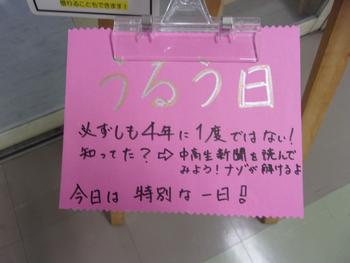 借りることもできます!
うるう日
必ずしも4年に1度ではない!
知ってた?⇨中高生新聞を読んで
みよう!ナゾが解けるよ
今日は特別な一日!!